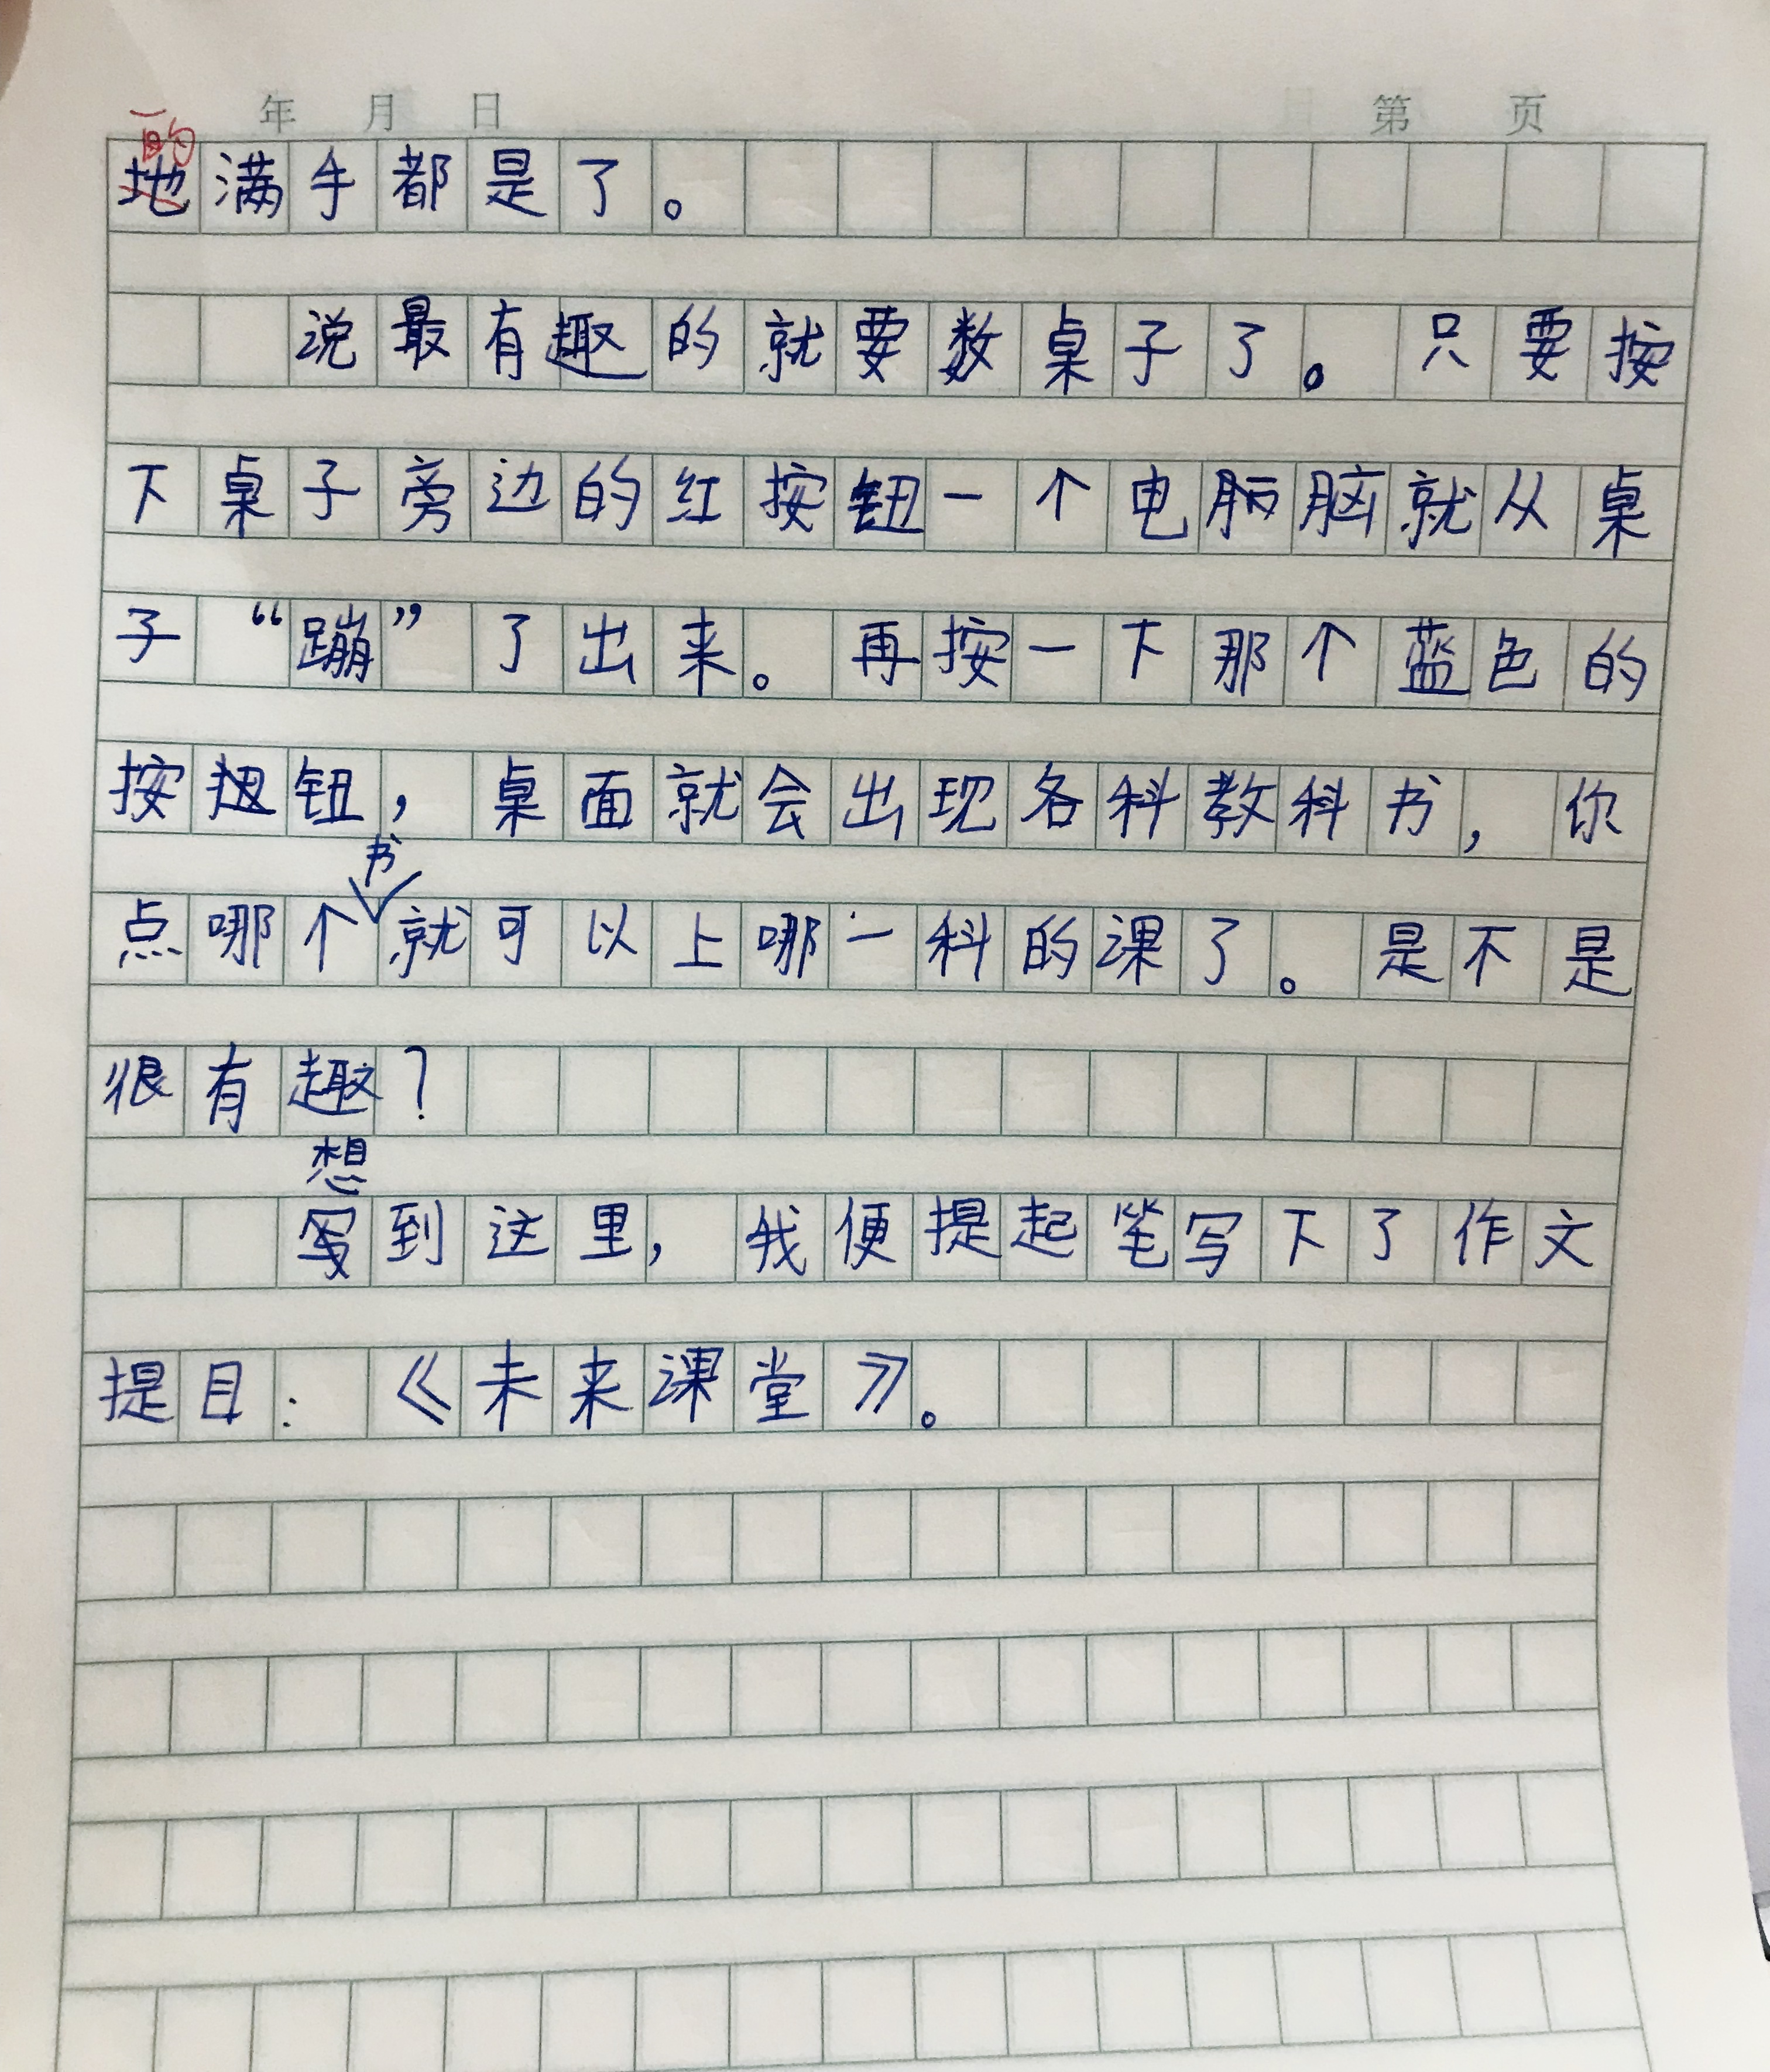 年 月 日 第 页
的
地满手都是了。
说最有趣的就要数桌子了。只要按
下桌子旁边的红按钮一个电脑就从桌
子“蹦”了出来。再按一下那个蓝色的
按钮,桌面就会出现各科教科书,你
书
点哪个就可以上哪一科的课了。是不是
很有趣?
想
写到这里,我便提起笔写下了作文
提目:《未来课堂》。